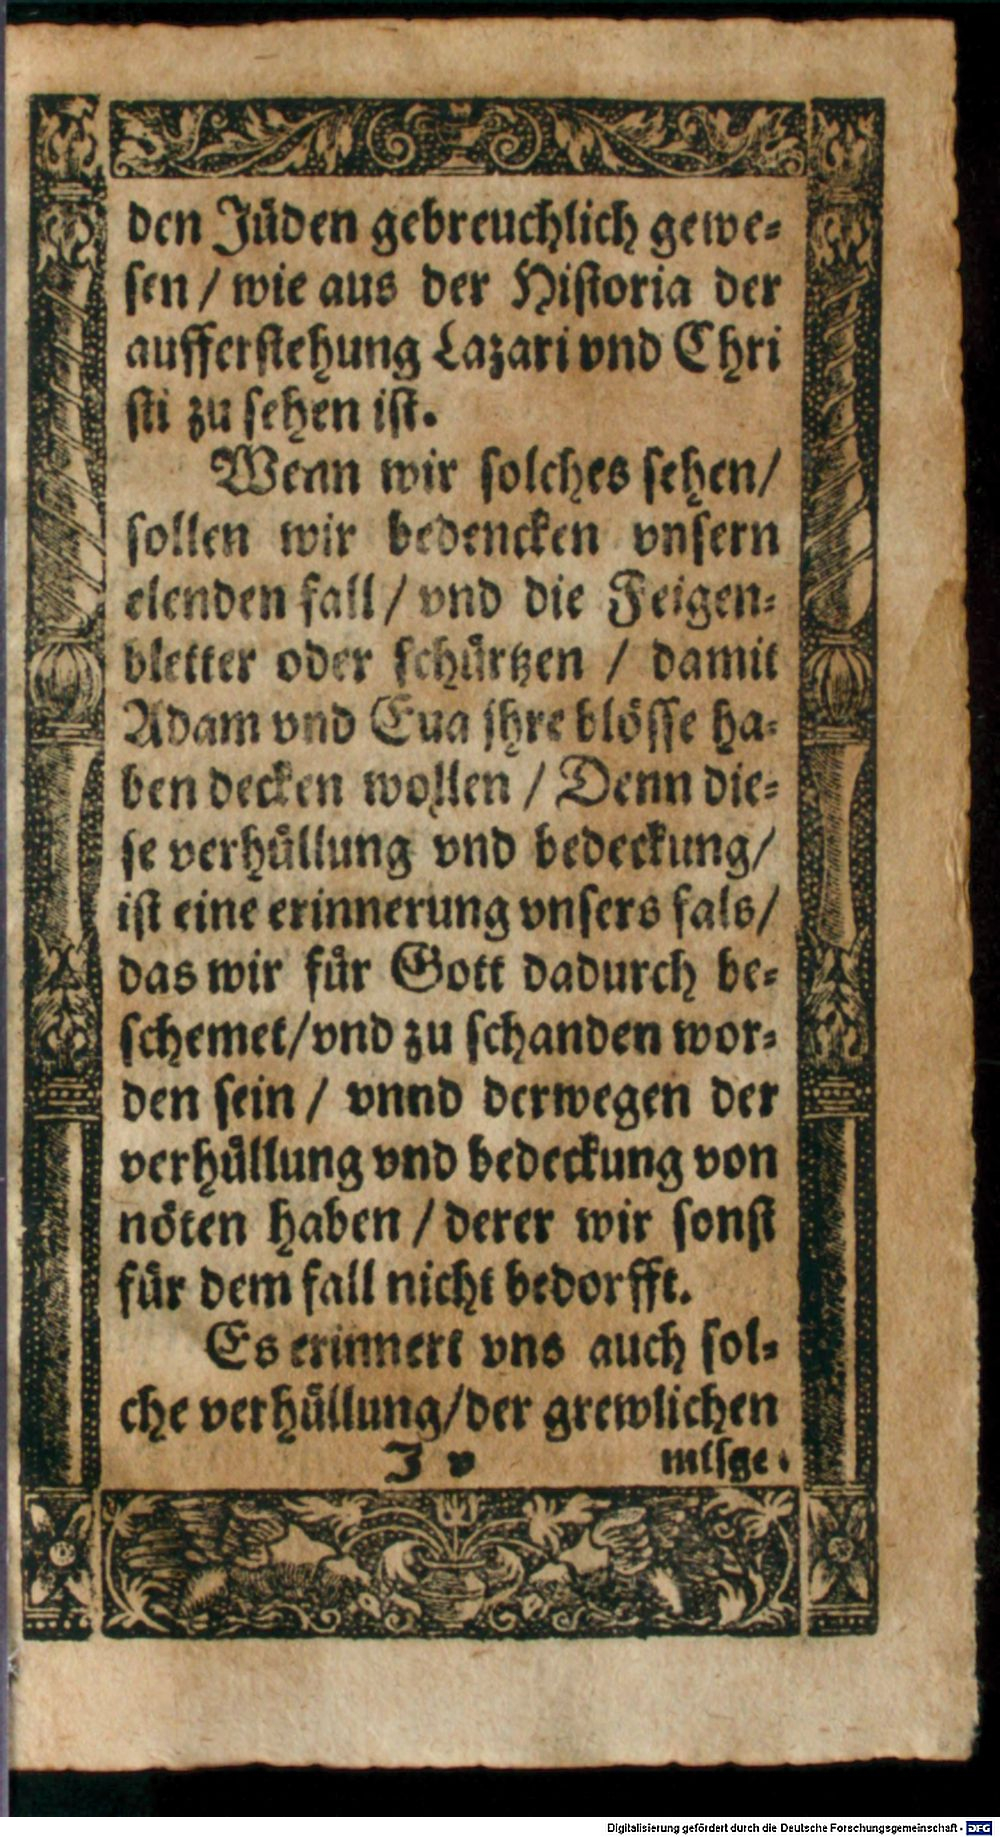 den Jüden gebreuchlich gewe-
sen / wie aus der Historia der
aufferstehung Lazari vnd Chri
sti zu sehen ist.
Wenn wir solches sehen/
sollen wir bedencken vnsern
elenden fall / vnd die Feigen-
bletter oder schürtzen / damit
Adam vnd Eua jhre blösse ha-
ben decken wollen / Denn die-
se verhüllung vnd bedeckung/
ist eine erinnerung vnsers fals/
das wir für Gott dadurch be-
schemet/vnd zu schanden wor-
den sein / vnnd derwegen der
verhüllung vnd bedeckung von
nöten haben / derer wir sonst
für dem fall nicht bedorfft.
Es erinnert vns auch sol-
che verhüllung/der grewlichen
J v misge-
Digitalisierung gefördert durch die Deutsche Forschungsgemeinschaft - DFG